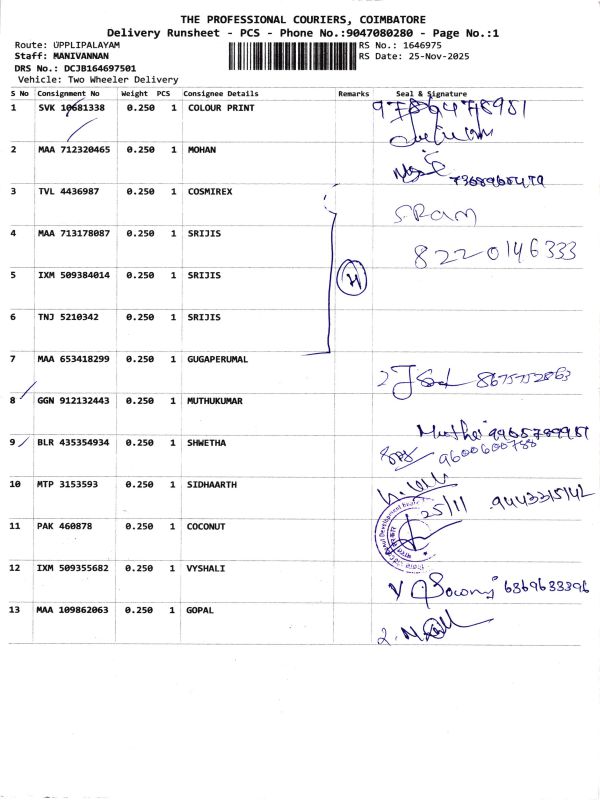 THE PROFESSIONAL COURIERS, COIMBATORE
Delivery Runsheet - PCS - Phone No.:9047080280 - Page No.:1
Route: UPPLIPALAYAM RS No.: 1646975
Staff: MANIVANNAN RS Date: 25-Nov-2025
DRS No.: DCJB164697501
Vehicle: Two Wheeler Delivery
S No Consignment No Weight PCS Consignee Details Remarks Seal & Signature
1 SVK 10681338 0.250 1 COLOUR PRINT 9786478981
2 MAA 712320465 0.250 1 MOHAN
3 TVL 4436987 0.250 1 COSMIREX S.RAM
4 MAA 713178087 0.250 1 SRIJIS 8220146333
5 IXM 509384014 0.250 1 SRIJIS H
6 TNJ 5210342 0.250 1 SRIJIS
7 MAA 653418299 0.250 1 GUGAPERUMAL
8 GGN 912132443 0.250 1 MUTHUKUMAR
9 BLR 435354934 0.250 1 SHWETHA 9600600788
10 MTP 3153593 0.250 1 SIDHAARTH 25/11 9443315142
11 PAK 460878 0.250 1 COCONUT
12 IXM 509355682 0.250 1 VYSHALI 6369633396
13 MAA 109862063 0.250 1 GOPAL